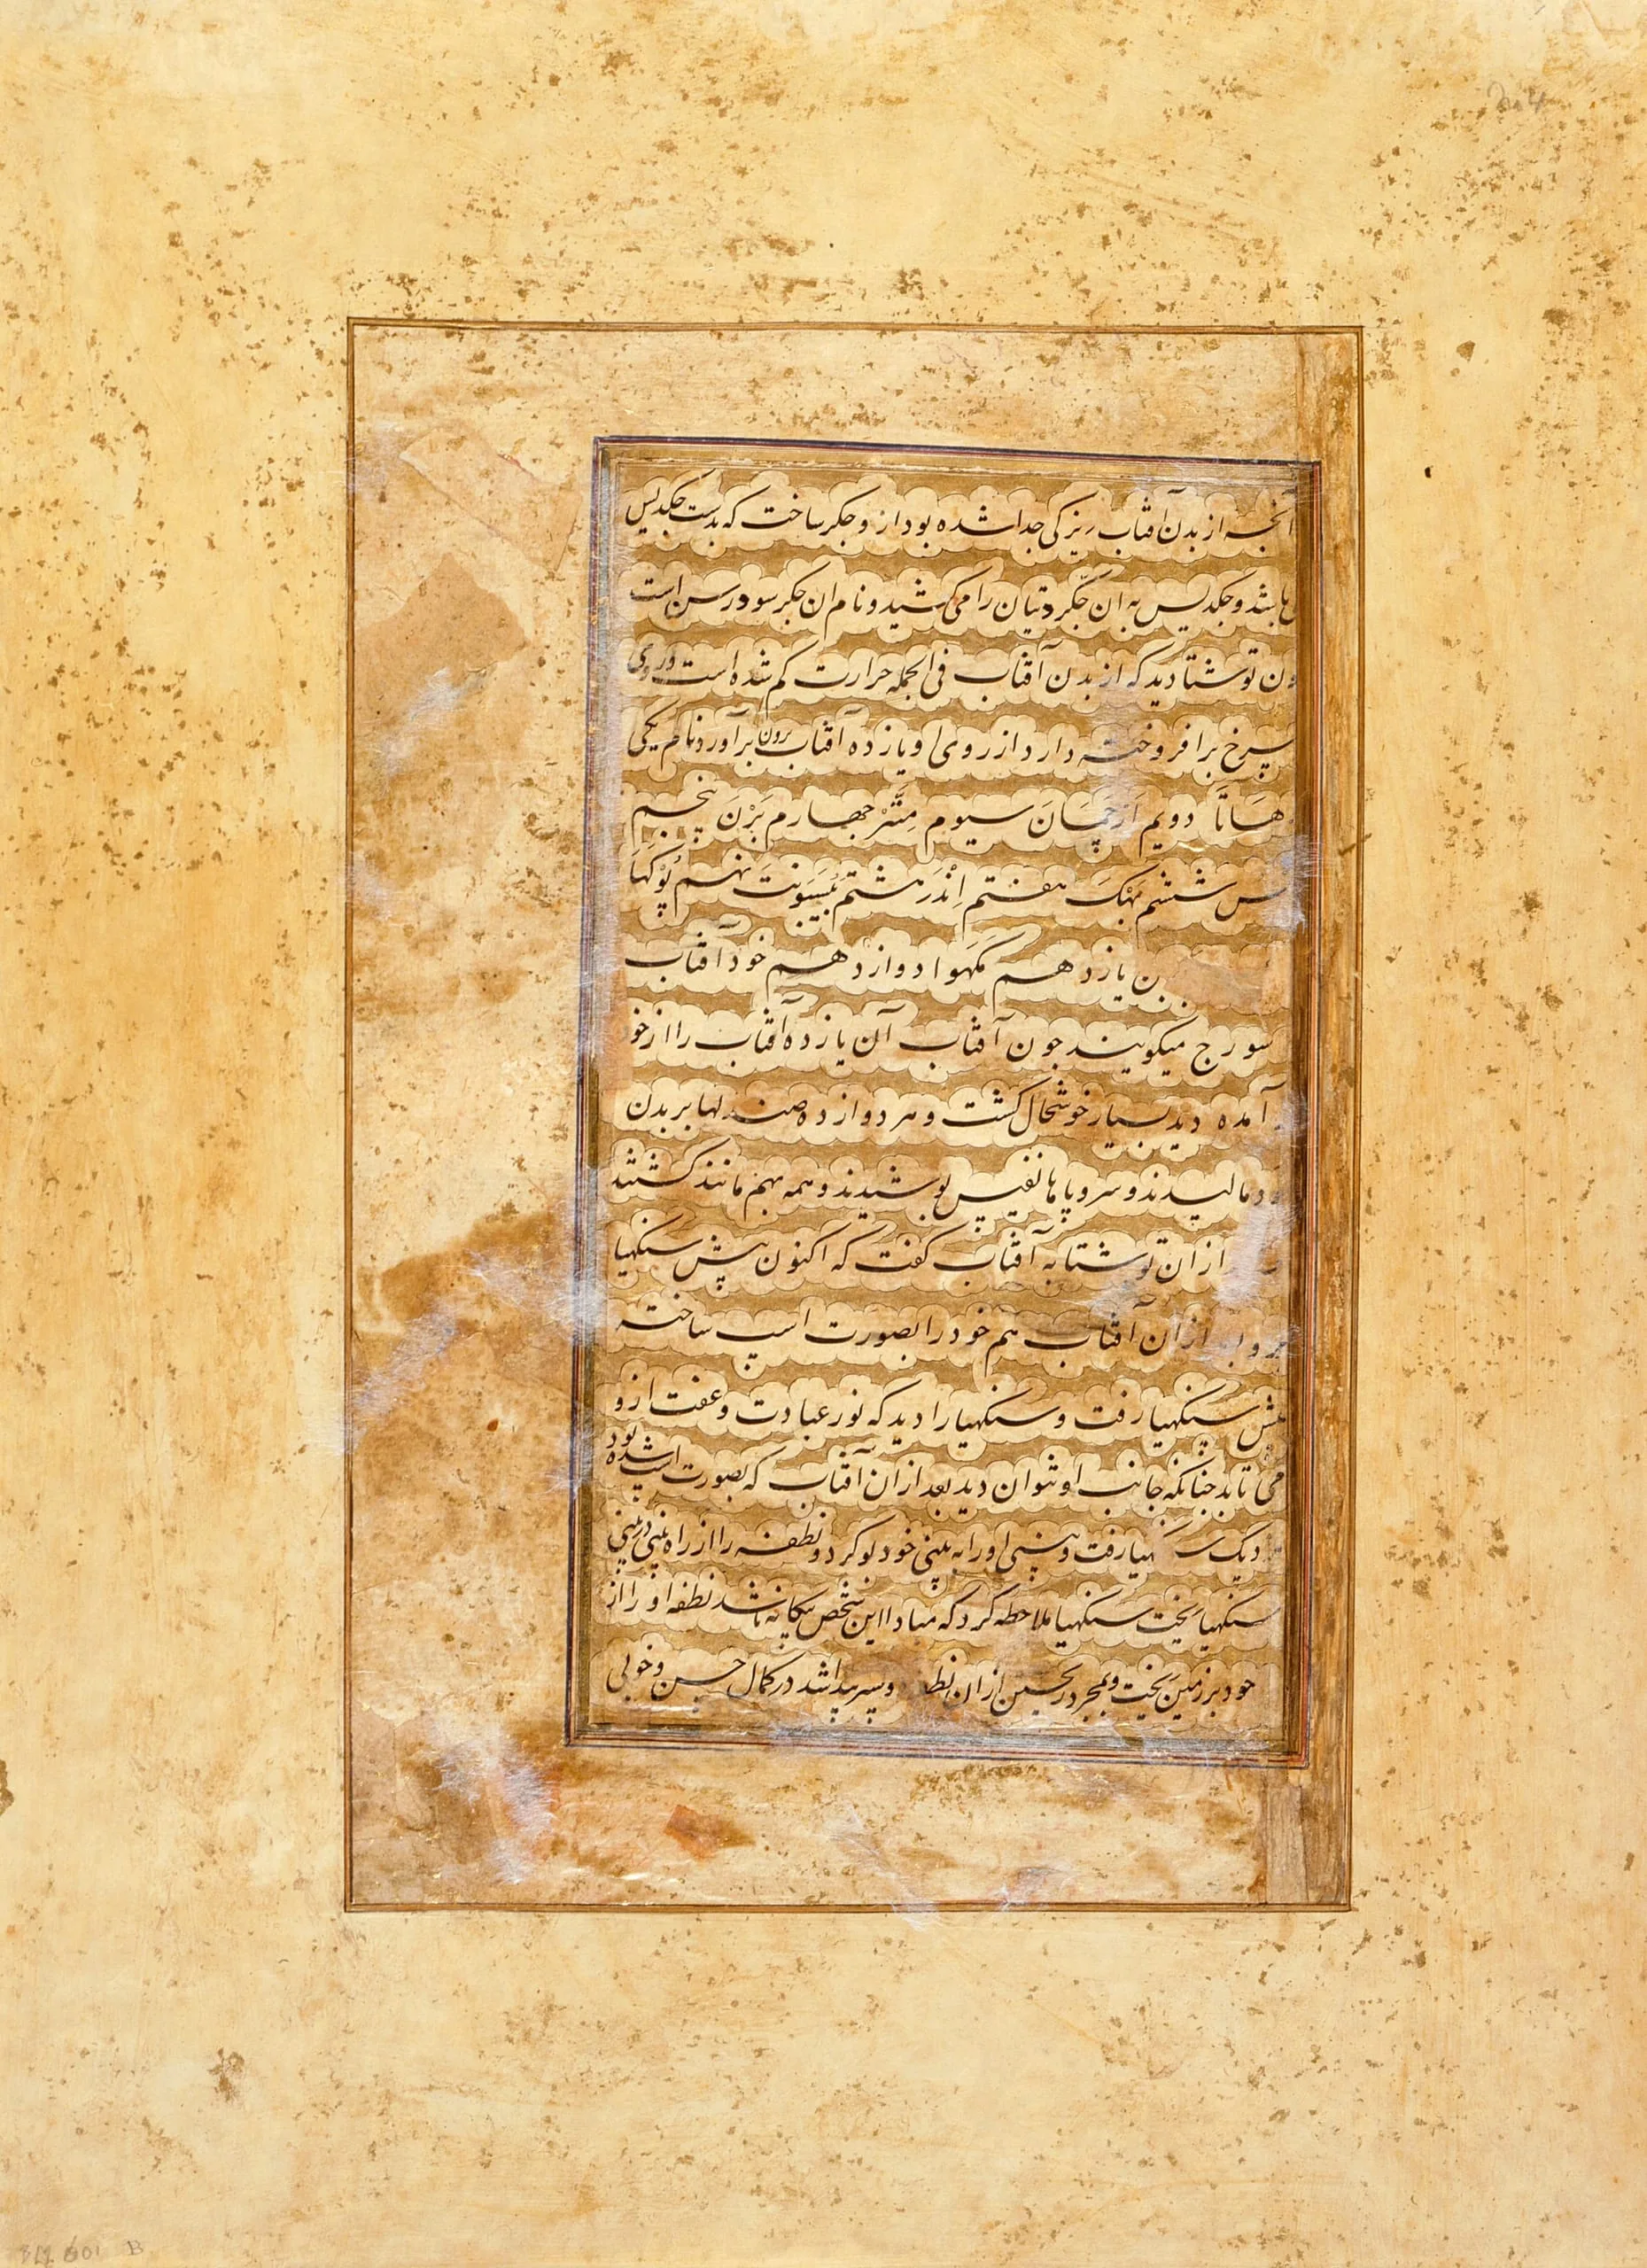 آنچه از بدن آفتاب ریزکی جدا شده بود ازو چکر ساخت که بدست جکدیس
باشد و جکدیس به ان چکر دتیان را می کشید و نام ان چکر سودرسن است
ون توشتا دید که از بدن آفتاب فی الجمله حرارت کم شده است و روی
سرخ برافروخته دارد از روی او یازده آفتاب برون برآورد نام یکی
هَاتَا دویم اَرجَمَان سیوم مِتَّرْ چهارم بَرْنَ پنجم
ششم بَهْکَ هفتم اِنْدَر هشتم بَیَسوَنْتَ نهم پُوْکَهَا
یازدهم دوازدهم خود آفتاب
سورج میکویند چون آفتاب آن یازده آفتاب را از خو
آمده دید بسیار خوشحال کشت و هر دوازده صندلها بر بدن
د مالیدند و سروپاها نفیس پوشیدند و همه بهم مانند کشتند
از ان توشتا به آفتاب کفت که اکنون پیش سنکهیا
ازان آفتاب هم خود را بصورت اسپ ساخته
پیش سنکهیا رفت و سنکهیا را دید که نور عبادت و عفت ازو
می تابد چنانکه جانب او نتوان دید بعد ازان آفتاب که بصورت اسپ شده بود
دیک سنکهیا رفت و بینی او را به بینی خود بو کرد و نطفه را از راه بینی در بینی
سنکهیا ریخت سنکهیا ملاحظه کرد که مبادا این شخص بیکانه باشد نطفه او را از
خود بر زمین ریخت و بمجرد ریختن ازان نطفه دو پسر پیدا شد در کمال حسن و خوبی